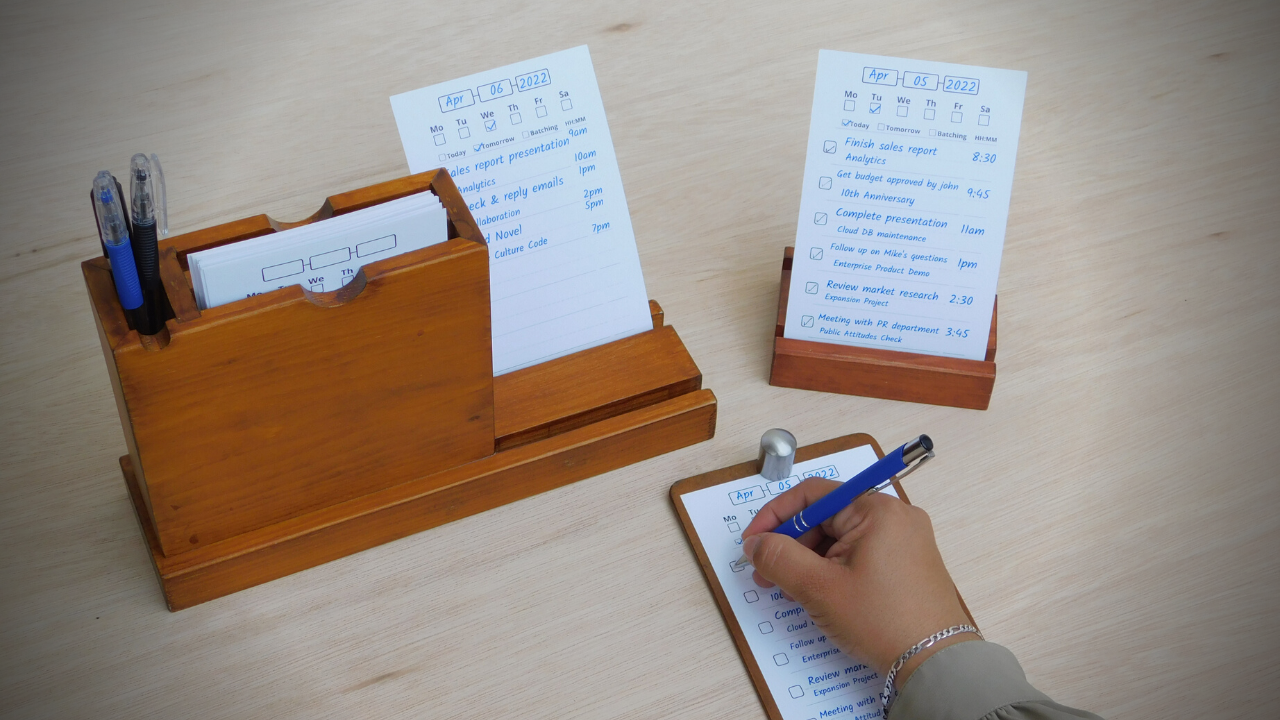 Apr 06 2022
Mo Tu We Th Fr Sa
Today Tomorrow Batching HH:MM
sales report presentation 9am
Analytics 10am
check & reply emails 1pm
Collaboration 2pm
Novel 5pm
Culture Code 7pm
We Th
Apr 05 2022
Mo Tu We Th Fr Sa
Today Tomorrow Batching HH:MM
Finish sales report 8:30
Analytics
Get budget approved by john 9:45
10th Anniversary
Complete presentation 11am
Cloud DB maintenance
Follow up on Mike's questions 1pm
Enterprise Product Demo
Review market research 2:30
Expansion Project
Meeting with PR department 3:45
Public Attitudes Check
Apr 05 2022
Mo Tu
10t
Compl
Cloud
Follow up
Enterpris
Review mar
Expansion Project
Meeting with
Attitud